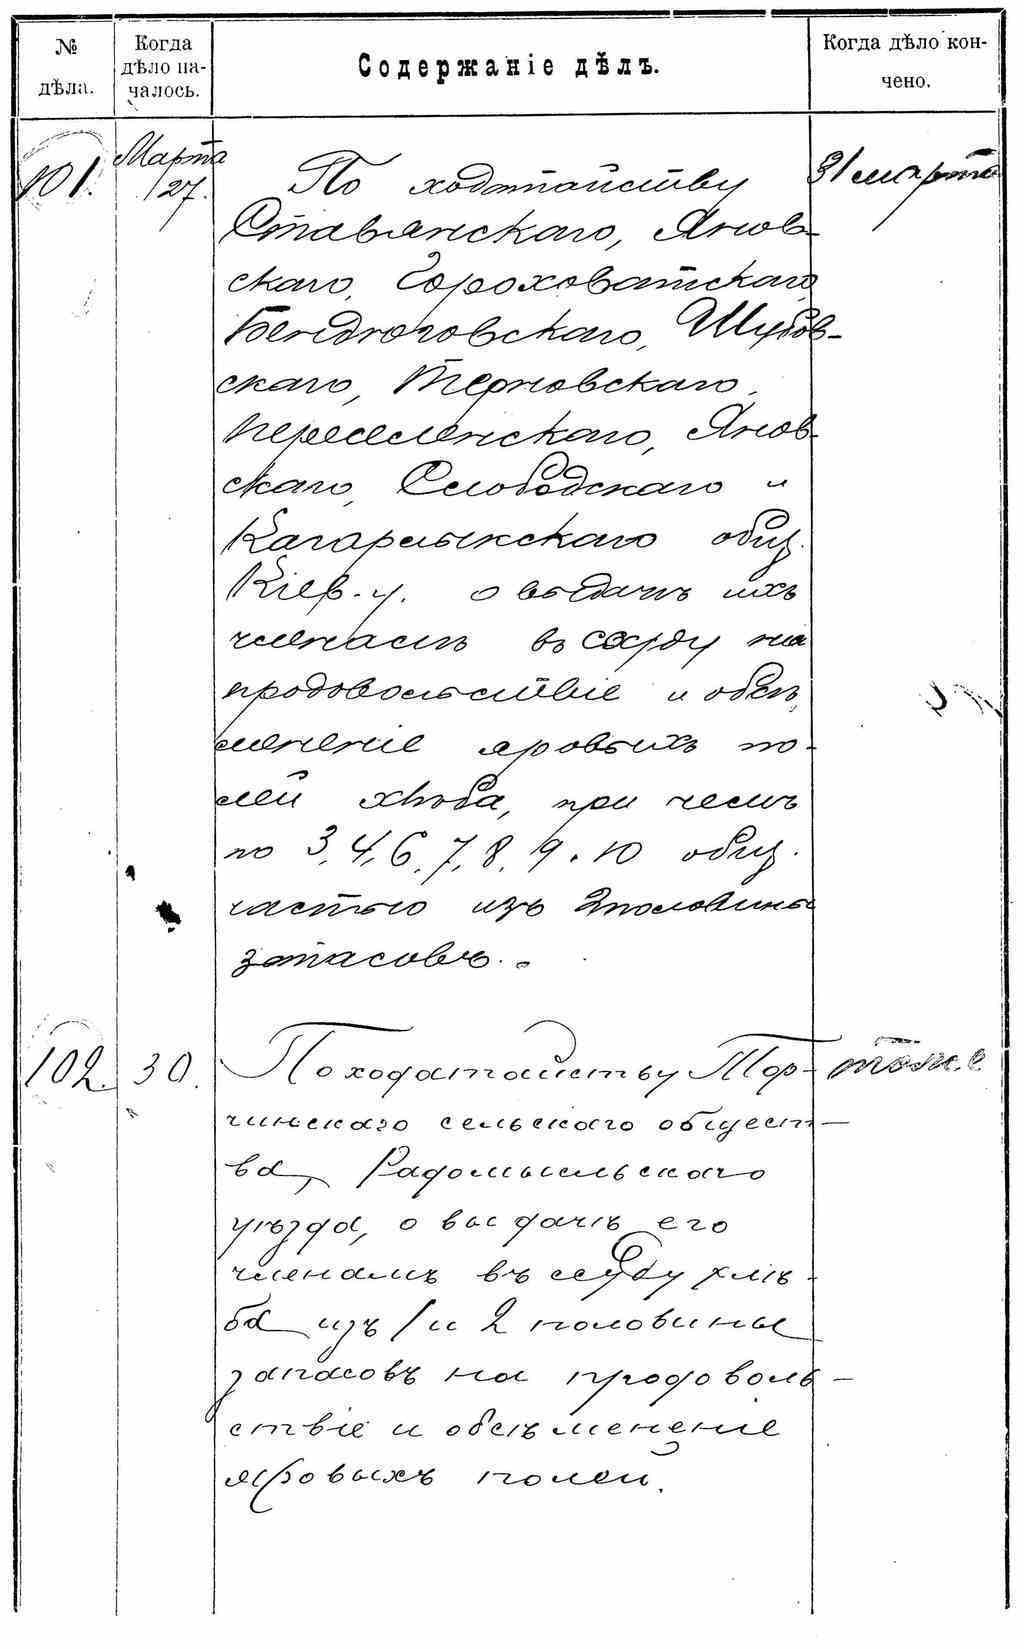 № дѣла.
Когда дѣло на-
чалось.
Содержаніе дѣлъ.
Когда дѣло кон-
чено.
101.
Марта
27.
31 марта
По ходатайству
Ставянскаго, Янов-
скаго, Гороховатскаго,
Бендюговскаго, Шубов-
скаго, Терновскаго,
Переселенскаго, Янов-
скаго, Слободскаго и
Кагарлыкскаго общ.
Кіев. у. о выдачѣ ихъ
членамъ въ ссуду на
продовольствіе и обсѣ-
мененіе яровыхъ по-
лей хлѣба, при чемъ
по 3, 4, 6, 7, 8, 9 и 10 общ.
частью изъ 2 половины
запасовъ.
102.
30.
тоже
По ходатайству Тор-
чинскаго сельскаго общест-
ва, Радомысльскаго
уѣзда, о выдачѣ его
членамъ въ ссуду хлѣ-
ба изъ 1 и 2 половины
запасовъ на продоволь-
ствіе и обсѣмененіе
яровыхъ полей.